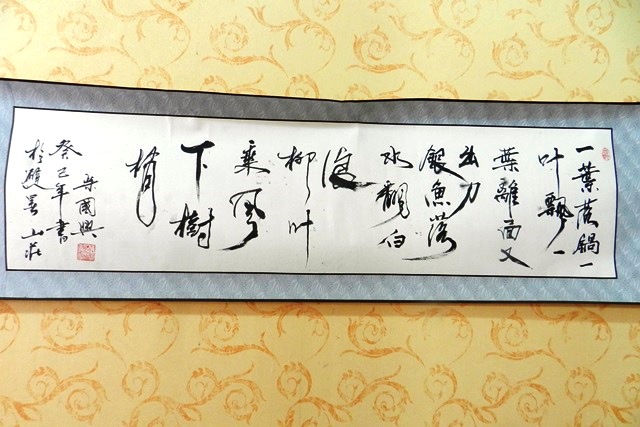 一葉落鍋一
叶飄一
葉離面又
出刀
銀魚落
水翻白
浪
柳叶
乘风
下樹
梢
國興
癸巳年書
於雙山莊